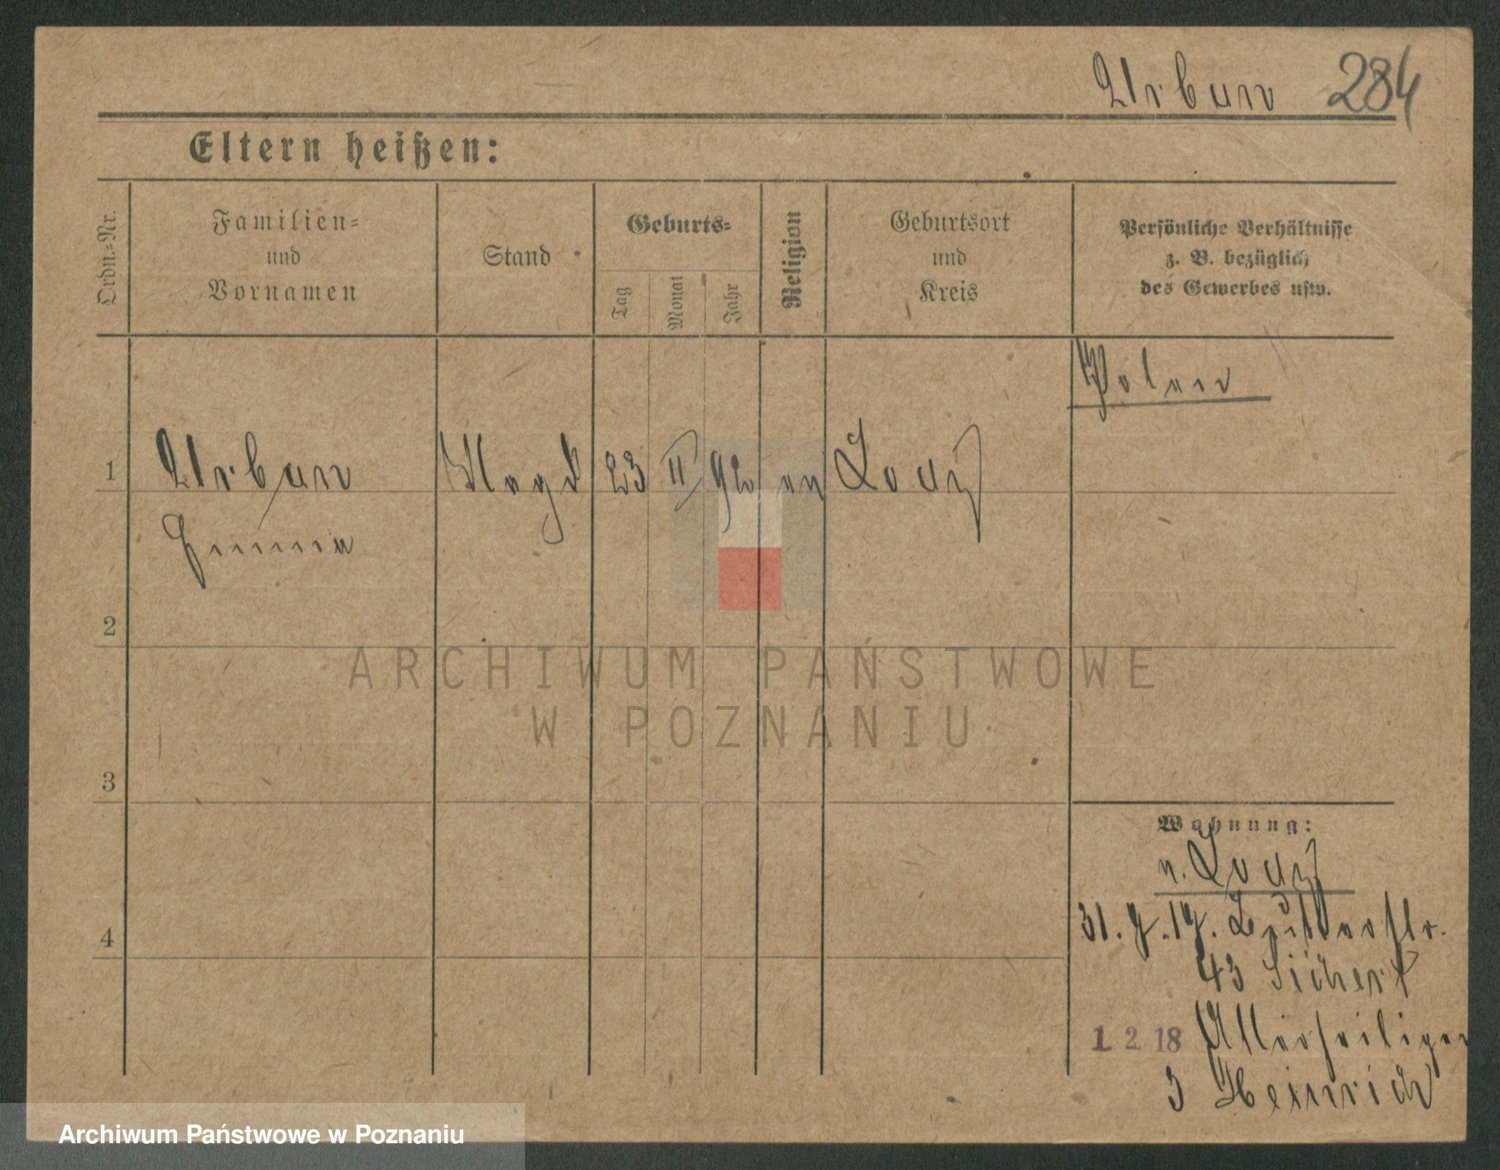 Urban 284
Eltern heißen:
Ordn.-Nr.
Familien-
und
Vornamen
Stand
Geburts-
Tag
Monat
Jahr
Religion
Geburtsort
und
Kreis
Persönliche Verhältnisse
z. B. bezüglich
des Gewerbes usw.
Polen
1 Urban Magd 23 II 92 ev Lodz
Emma
2
ARCHIWUM PAŃSTWOWE
W POZNANIU
3
Wohnung:
v. Lodz
4
31. 7. 17.
43 Sichert
1 2 18 Allerheiligen
3 Heinrich
Archiwum Państwowe w Poznaniu